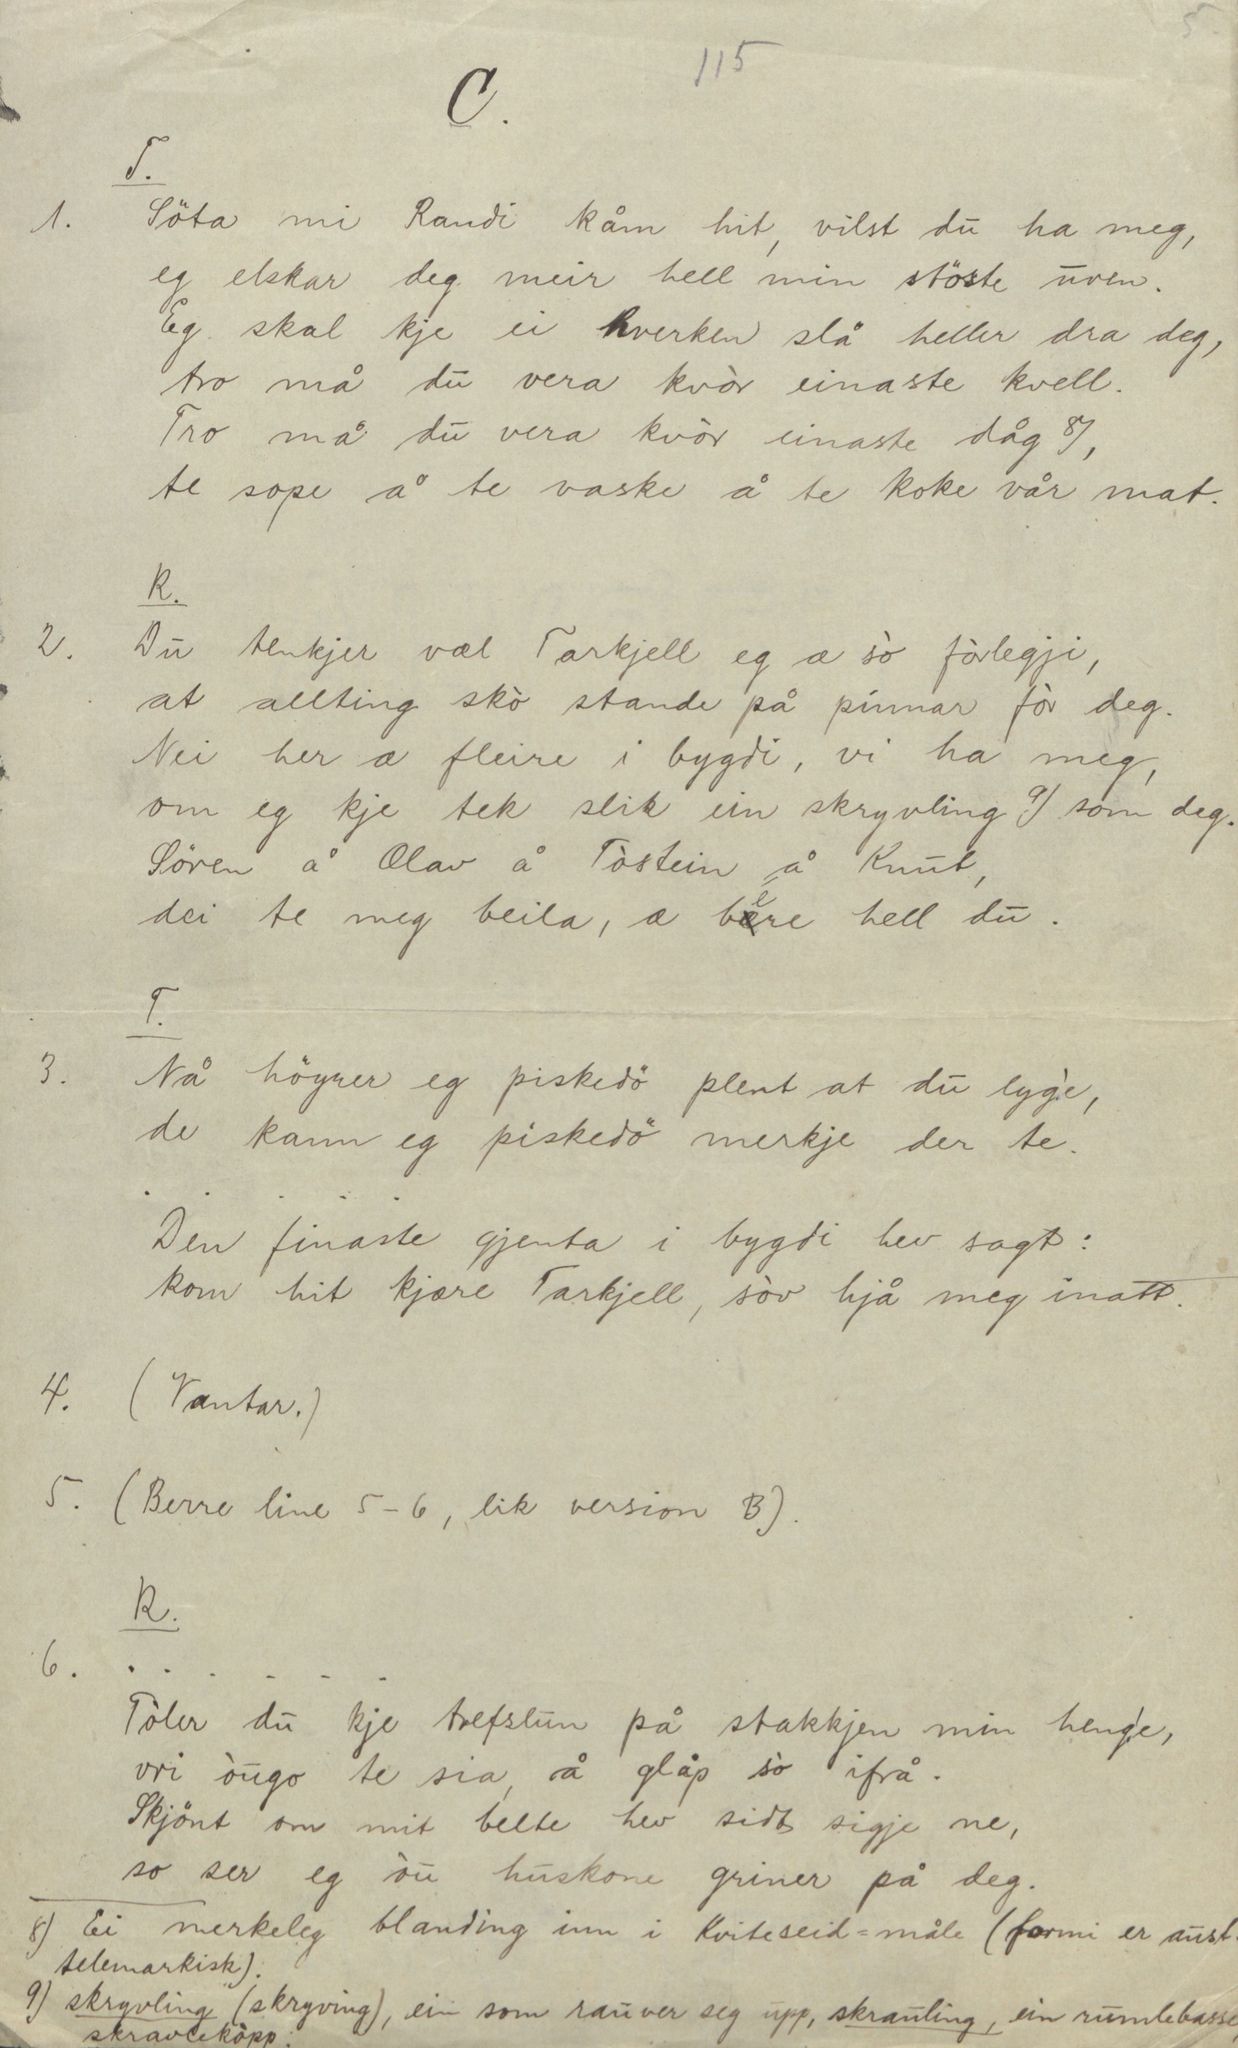 115
5
C.
T.
1. Söta mi Randi kåm hit, vilst du ha meg,
eg elskar deg meir hell min stöste uven.
Eg skal kje ei hverken slå heller dra deg,
tro må du vera kvòr einaste kvell.
Tro må du vera kvòr einaste dåg 8),
te sope å te vaske å te koke vår mat.
R.
2. Du tenkjer væl Tarkjell eg æ sò fòrlegji,
at allting skò stande på pinnar fòr deg.
Nei her æ fleire i bygdi, vi ha meg,
om eg kje tek slik ein skryvling 9) som deg.
Sören å Olav å Tòstein å Knut,
dei te meg beila, æ bere hell du.
T.
3. Nå höyrer eg piskedö plent at du lyge,
de kann eg piskedö merkje der te.
. . . . . .
Den finaste gjenta i bygdi hev sagt:
kom hit kjære Tarkjell, sòv hjå meg inatt.
4. (Vantar.)
5. (Berre line 5-6, lik version B).
R.
6. . . . . . .
Tòler du kje trefslun på stakkjen min henge,
vri òugo te sia, å glåp sò ifrå.
Skjönt om mit belte hev sidt sigje ne,
so ser eg òu huskone griner på deg.
8) Ei merkeleg blanding inn i Kviteseid=måle (formi er aust-
telemarkisk).
9) skryvling (skryving), ein som rauver seg upp, skrauling, ein rumlebasse,
skravleköpp.